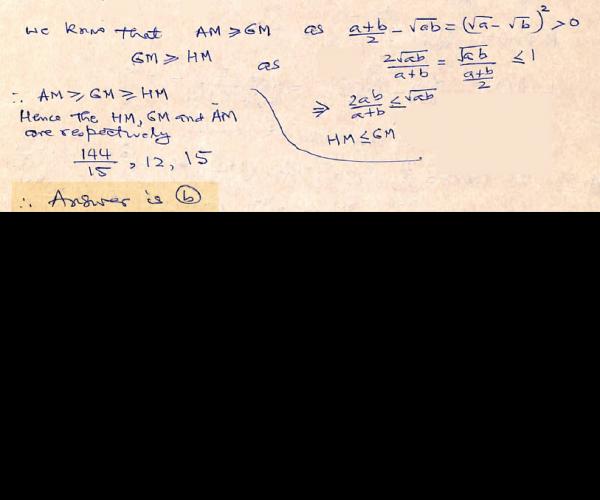 we know that AM ≥ GM as (a+b)/2 - √ab = (√a - √b)² > 0
GM ≥ HM as 2√ab/(a+b) = √ab/((a+b)/2) ≤ 1
∴ AM ≥ GM ≥ HM
⇒ 2ab/(a+b) ≤ √ab
Hence the HM, GM and AM
are respectively
HM ≤ GM
144/15, 12, 15
∴ Answer is (b)